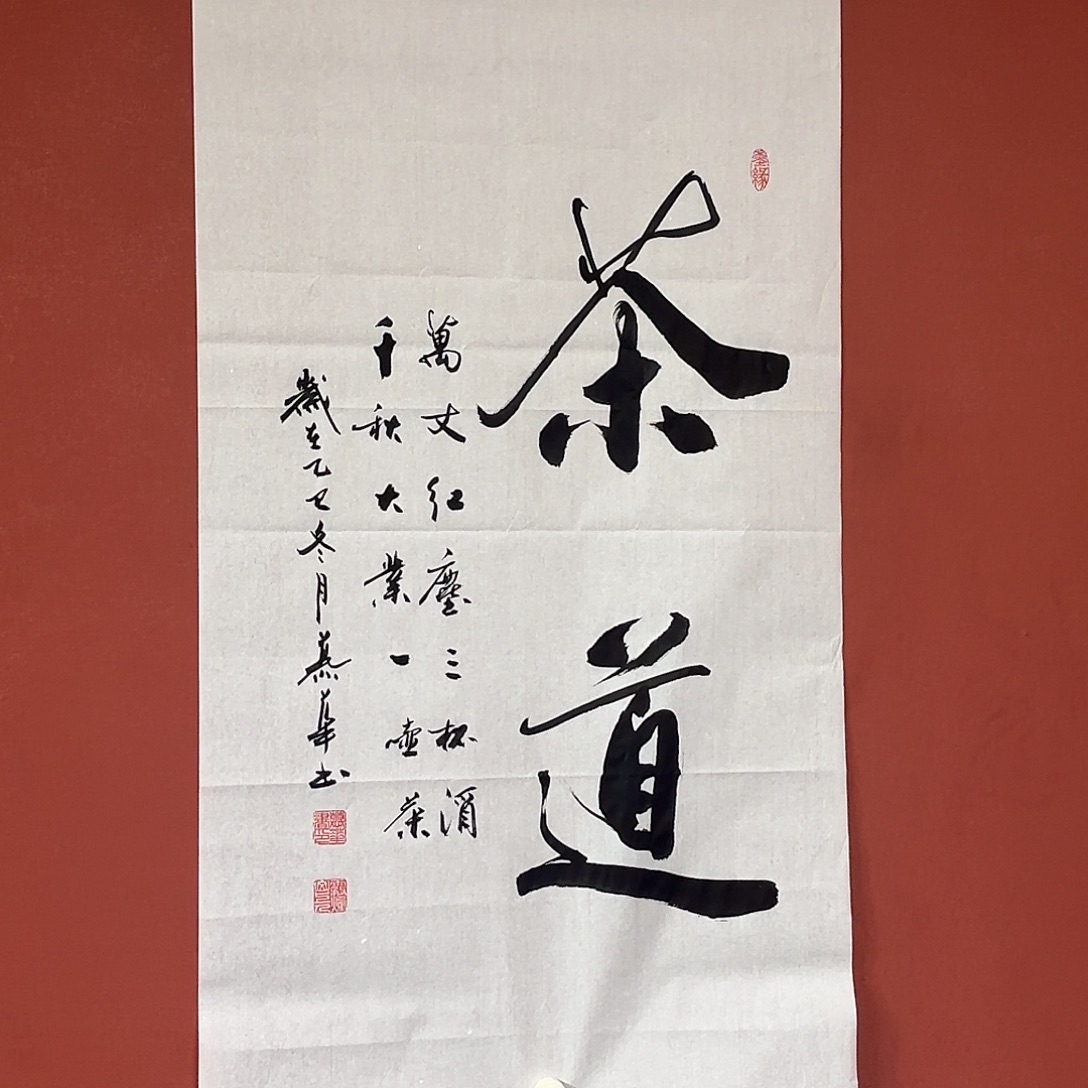 茶道
萬丈紅塵三杯酒
千秋大業一壺茶
歲在乙巳冬月慕華書
墨緣